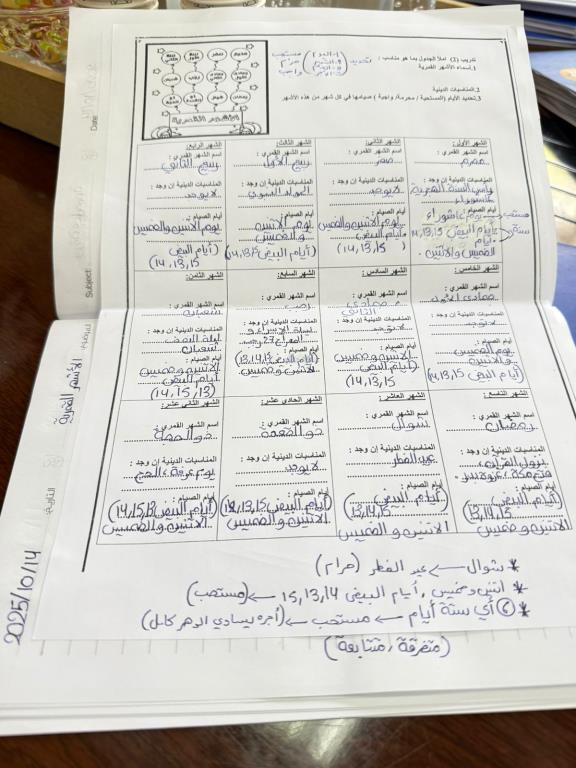 تدريب 2) املأ الجدول بما هو مناسب :
1.أسماء الأشهر القمرية
2.المناسبات الدينية
3.تحديد الأيام (المستحبة / محرمة/ واجبة ) صيامها في كل شهر من هذه الأشهر
تحديد
مستحب
حرام
واجب
الأشهر القمرية
Date:
Subject:
التاريخ:
الأشهر القمرية
2025/10/14
الشهر الأول:
اسم الشهر القمري :
محرم
المناسبات الدينية إن وجد :
رأس السنة الهجرية
عاشوراء
أيام الصيام :
يوم عاشوراء
أيام البيض 14,13,15
أيام
الخميس والاثنين .
مستحب
سنة
الشهر الثاني:
اسم الشهر القمري :
صفر
المناسبات الدينية إن وجد :
لا يوجد
أيام الصيام :
يوم الاثنين والخميس
أيام البيض
( 14,13,15
الشهر الثالث:
اسم الشهر القمري :
ربيع الأول
المناسبات الدينية إن وجد :
المولد النبوي
أيام الصيام :
يوم الاثنين
والخميس
(أيام البيض 14,13,15)
الشهر الرابع:
اسم الشهر القمري :
ربيع الثاني
المناسبات الدينية إن وجد :
لا يوجد
أيام الصيام :
يوم الاثنين والخميس
(أيام البيض
14,13,15)
الشهر الخامس:
اسم الشهر القمري :
جمادى الأولى
المناسبات الدينية إن وجد :
لا توجد
أيام الصيام :
يوم الخميس
والاثنين
(أيام البيض 14,13,15)
الشهر السادس:
اسم الشهر القمري :
جمادى
الثاني
المناسبات الدينية إن وجد :
لا توجد
أيام الصيام :
الاثنين وخميس
(أيام البيض
14,13,15)
الشهر السابع:
اسم الشهر القمري :
رجب
المناسبات الدينية إن وجد :
ليلة الإسراء و
المعراج 27 رجب
أيام الصيام :
(أيام البيض 13,14,15)
الاثنين وخميس
الشهر الثامن:
اسم الشهر القمري :
شعبان
المناسبات الدينية إن وجد :
ليلة النصف
شعبان
أيام الصيام :
الاثنين وخميس
أيام البيض
(14,15,13)
الشهر التاسع:
اسم الشهر القمري :
رمضان
المناسبات الدينية إن وجد :
نزول القرآن
فتح مكة
أيام الصيام :
(أيام البيض
13,14,15)
الاثنين وخميس
الشهر العاشر:
اسم الشهر القمري :
شوال
المناسبات الدينية إن وجد :
عيد الفطر
أيام الصيام :
(أيام البيض
13,14,15)
الاثنين والخميس
الشهر الحادي عشر:
اسم الشهر القمري :
ذو القعدة
المناسبات الدينية إن وجد :
لا يوجد
أيام الصيام :
(أيام البيض 14,13,15)
الاثنين والخميس
الشهر الثاني عشر:
اسم الشهر القمري :
ذو الحجة
المناسبات الدينية إن وجد :
يوم عرفة، الحج
أيام الصيام :
(أيام البيض 14,15,13)
الاثنين والخميس
* شوال ← عيد الفطر (حرام)
* اثنين وخميس , أيام البيض 15,13,14 ← (مستحب)
* ⑥ أي ستة أيام ← مستحب ← (أجره يساوي الدهر كامل)
(متفرقة , متتابعة)